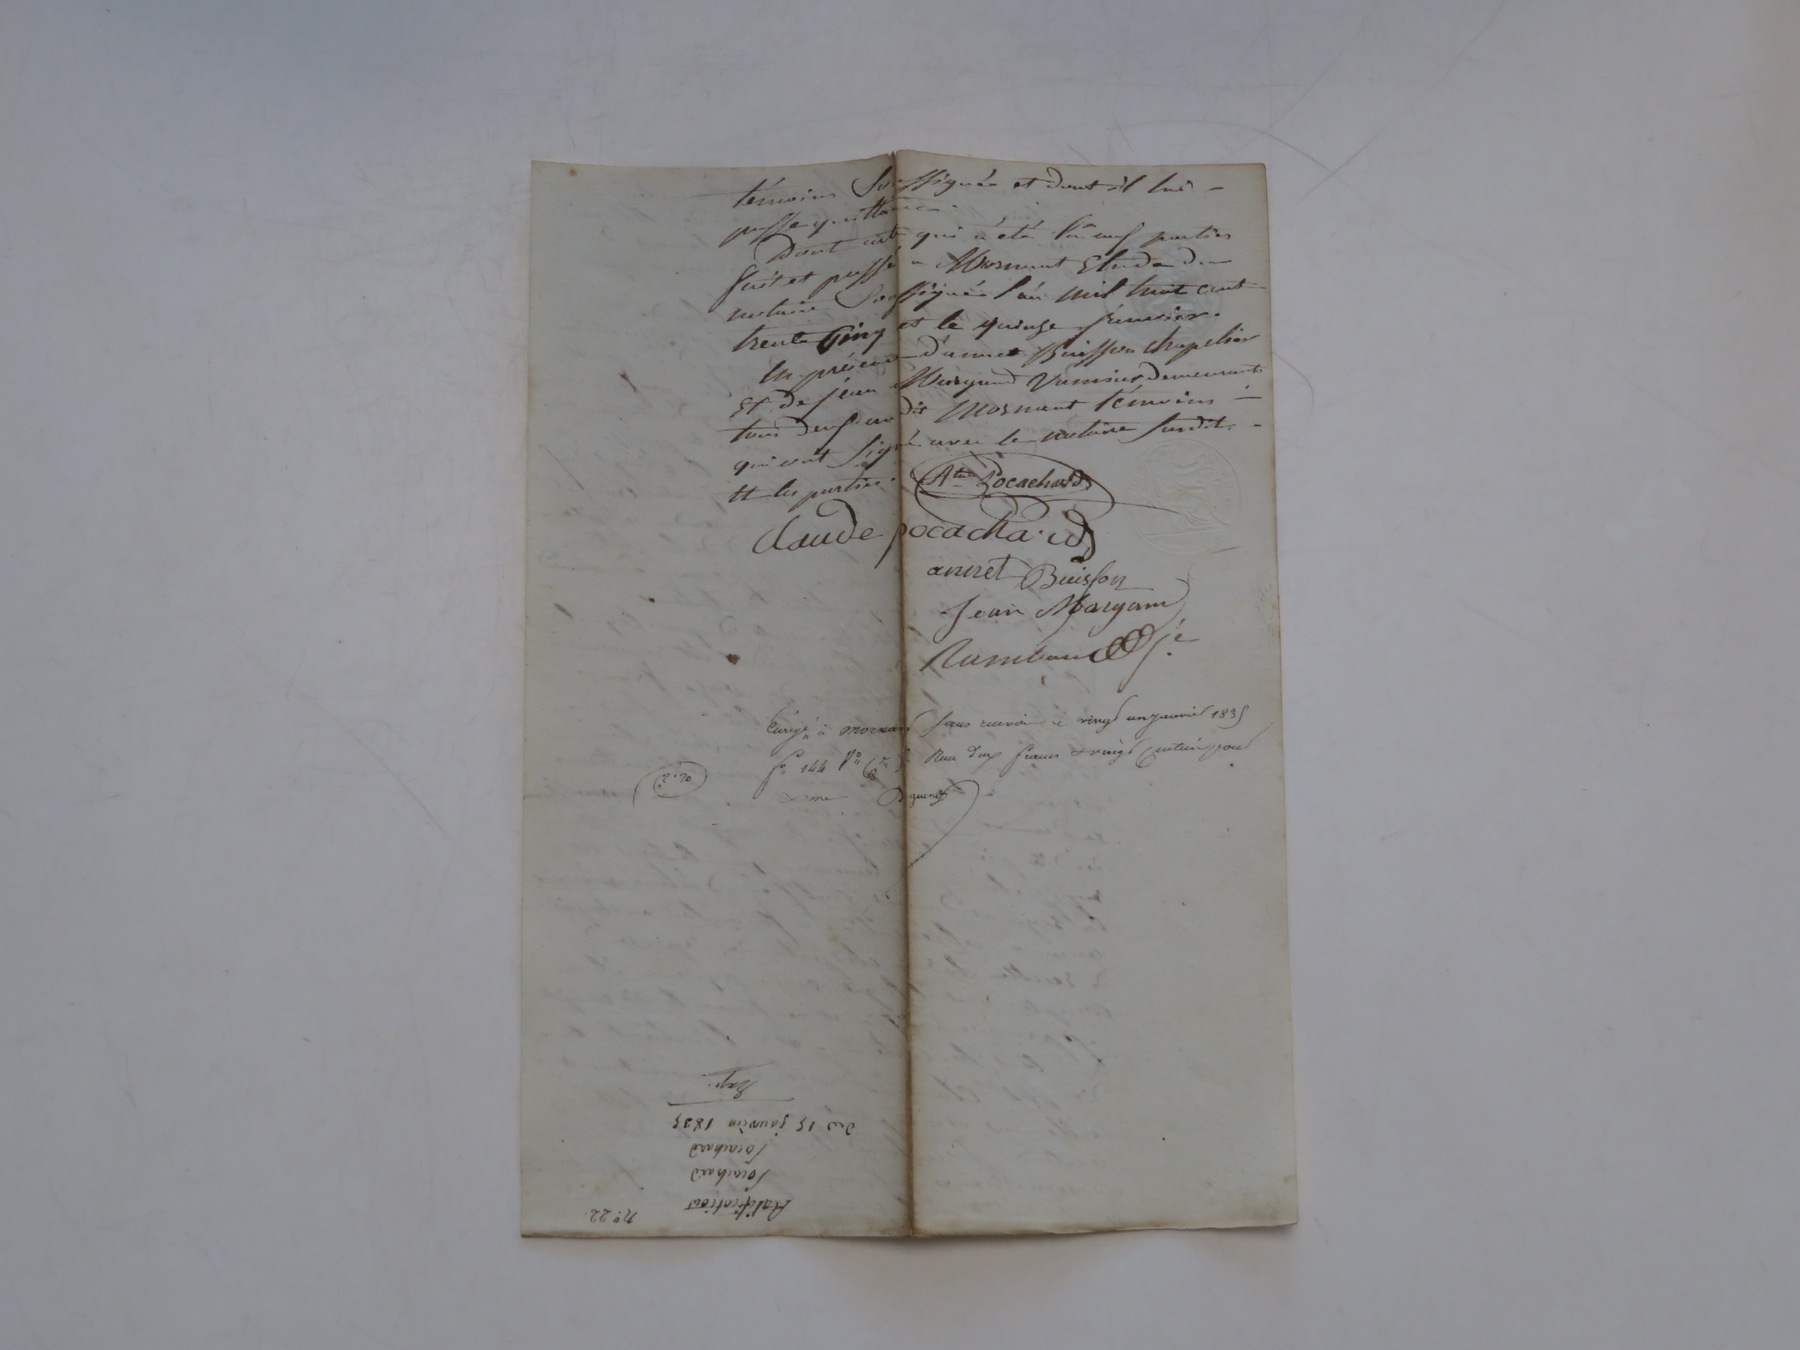 témoins Soussignés et dont il lui -
passe quittance.
Dont acte qui a été lu aux parties
fait et passé a Mornant Etude du
notaire Soussigné l'an mil huit cent
trente Cinq et le quinze janvier.
En présence d'annet Buisson Chapelier
Et de jean Margand demeurants
tous deux au dit Mornant témoins -
qui ont Signé avec le notaire Susdit. -
Et les parties.
Ate Pocachard
claude pocachard
annet Buisson
Jean Margand
Rambaud
Enregé à mornant vingt un janvier 1835
fo 144 Reçu deux francs vingt centimes pour
2.20
no. 22.
Ratification
Pocachard
Pocachard
Du 15 janvier 1835